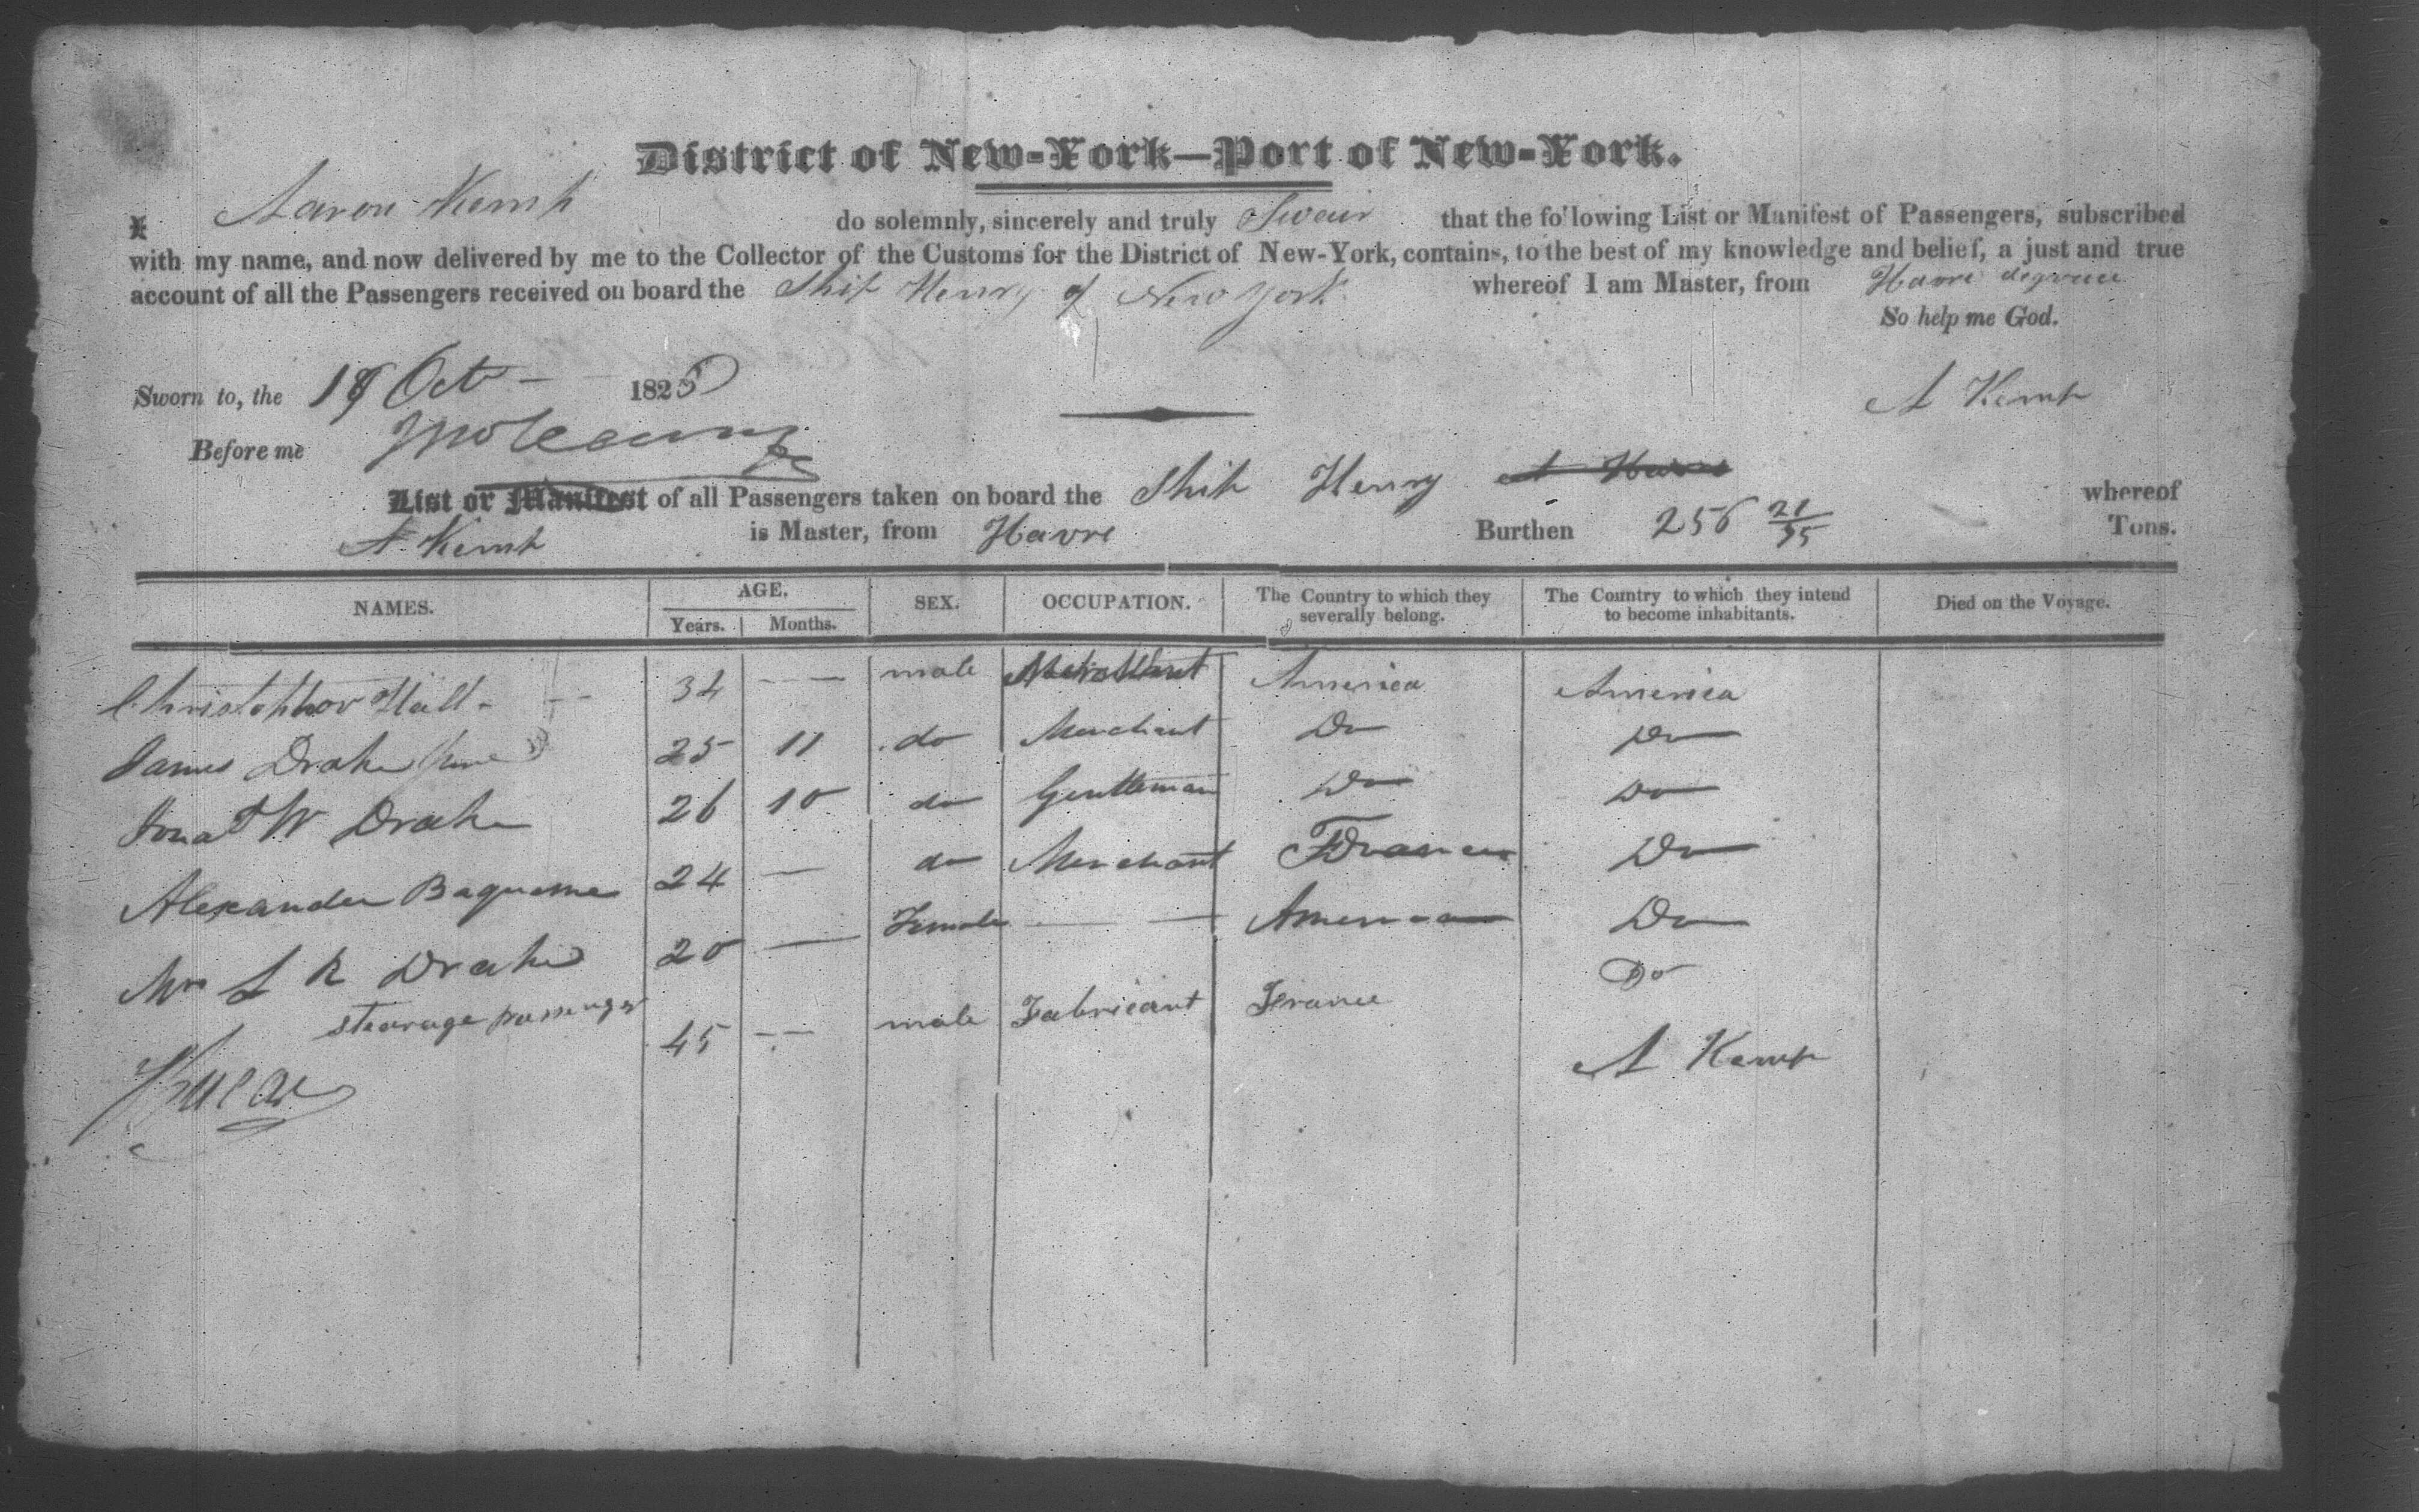 District of New-York—Port of New-York.
I Aaron Kemp do solemnly, sincerely and truly Swear that the following List or Manifest of Passengers, subscribed
with my name, and now delivered by me to the Collector of the Customs for the District of New-York, contains, to the best of my knowledge and belief, a just and true
account of all the Passengers received on board the Ship Henry of New York whereof I am Master, from Havre degrace
So help me God.
Sworn to, the Oct 1825
A Kemp
Before me
List or Manifest of all Passengers taken on board the Ship Henry whereof
A. Kemp is Master, from Havre Burthen 256 21/95 Tons.
NAMES. AGE. SEX. OCCUPATION. The Country to which they severally belong. The Country to which they intend to become inhabitants. Died on the Voyage.
Years. Months.
Christopher Hall 34 male America America
James Drake June 25 11 do Merchant Do Do
Jonat W Drake 26 10 do Gentleman Do Do
Alexander 24 — do Merchant France Do
Mrs L R Drake 20 — Female — — America Do
stearage passenger
45 — male Fabricant France Do
A Kemp